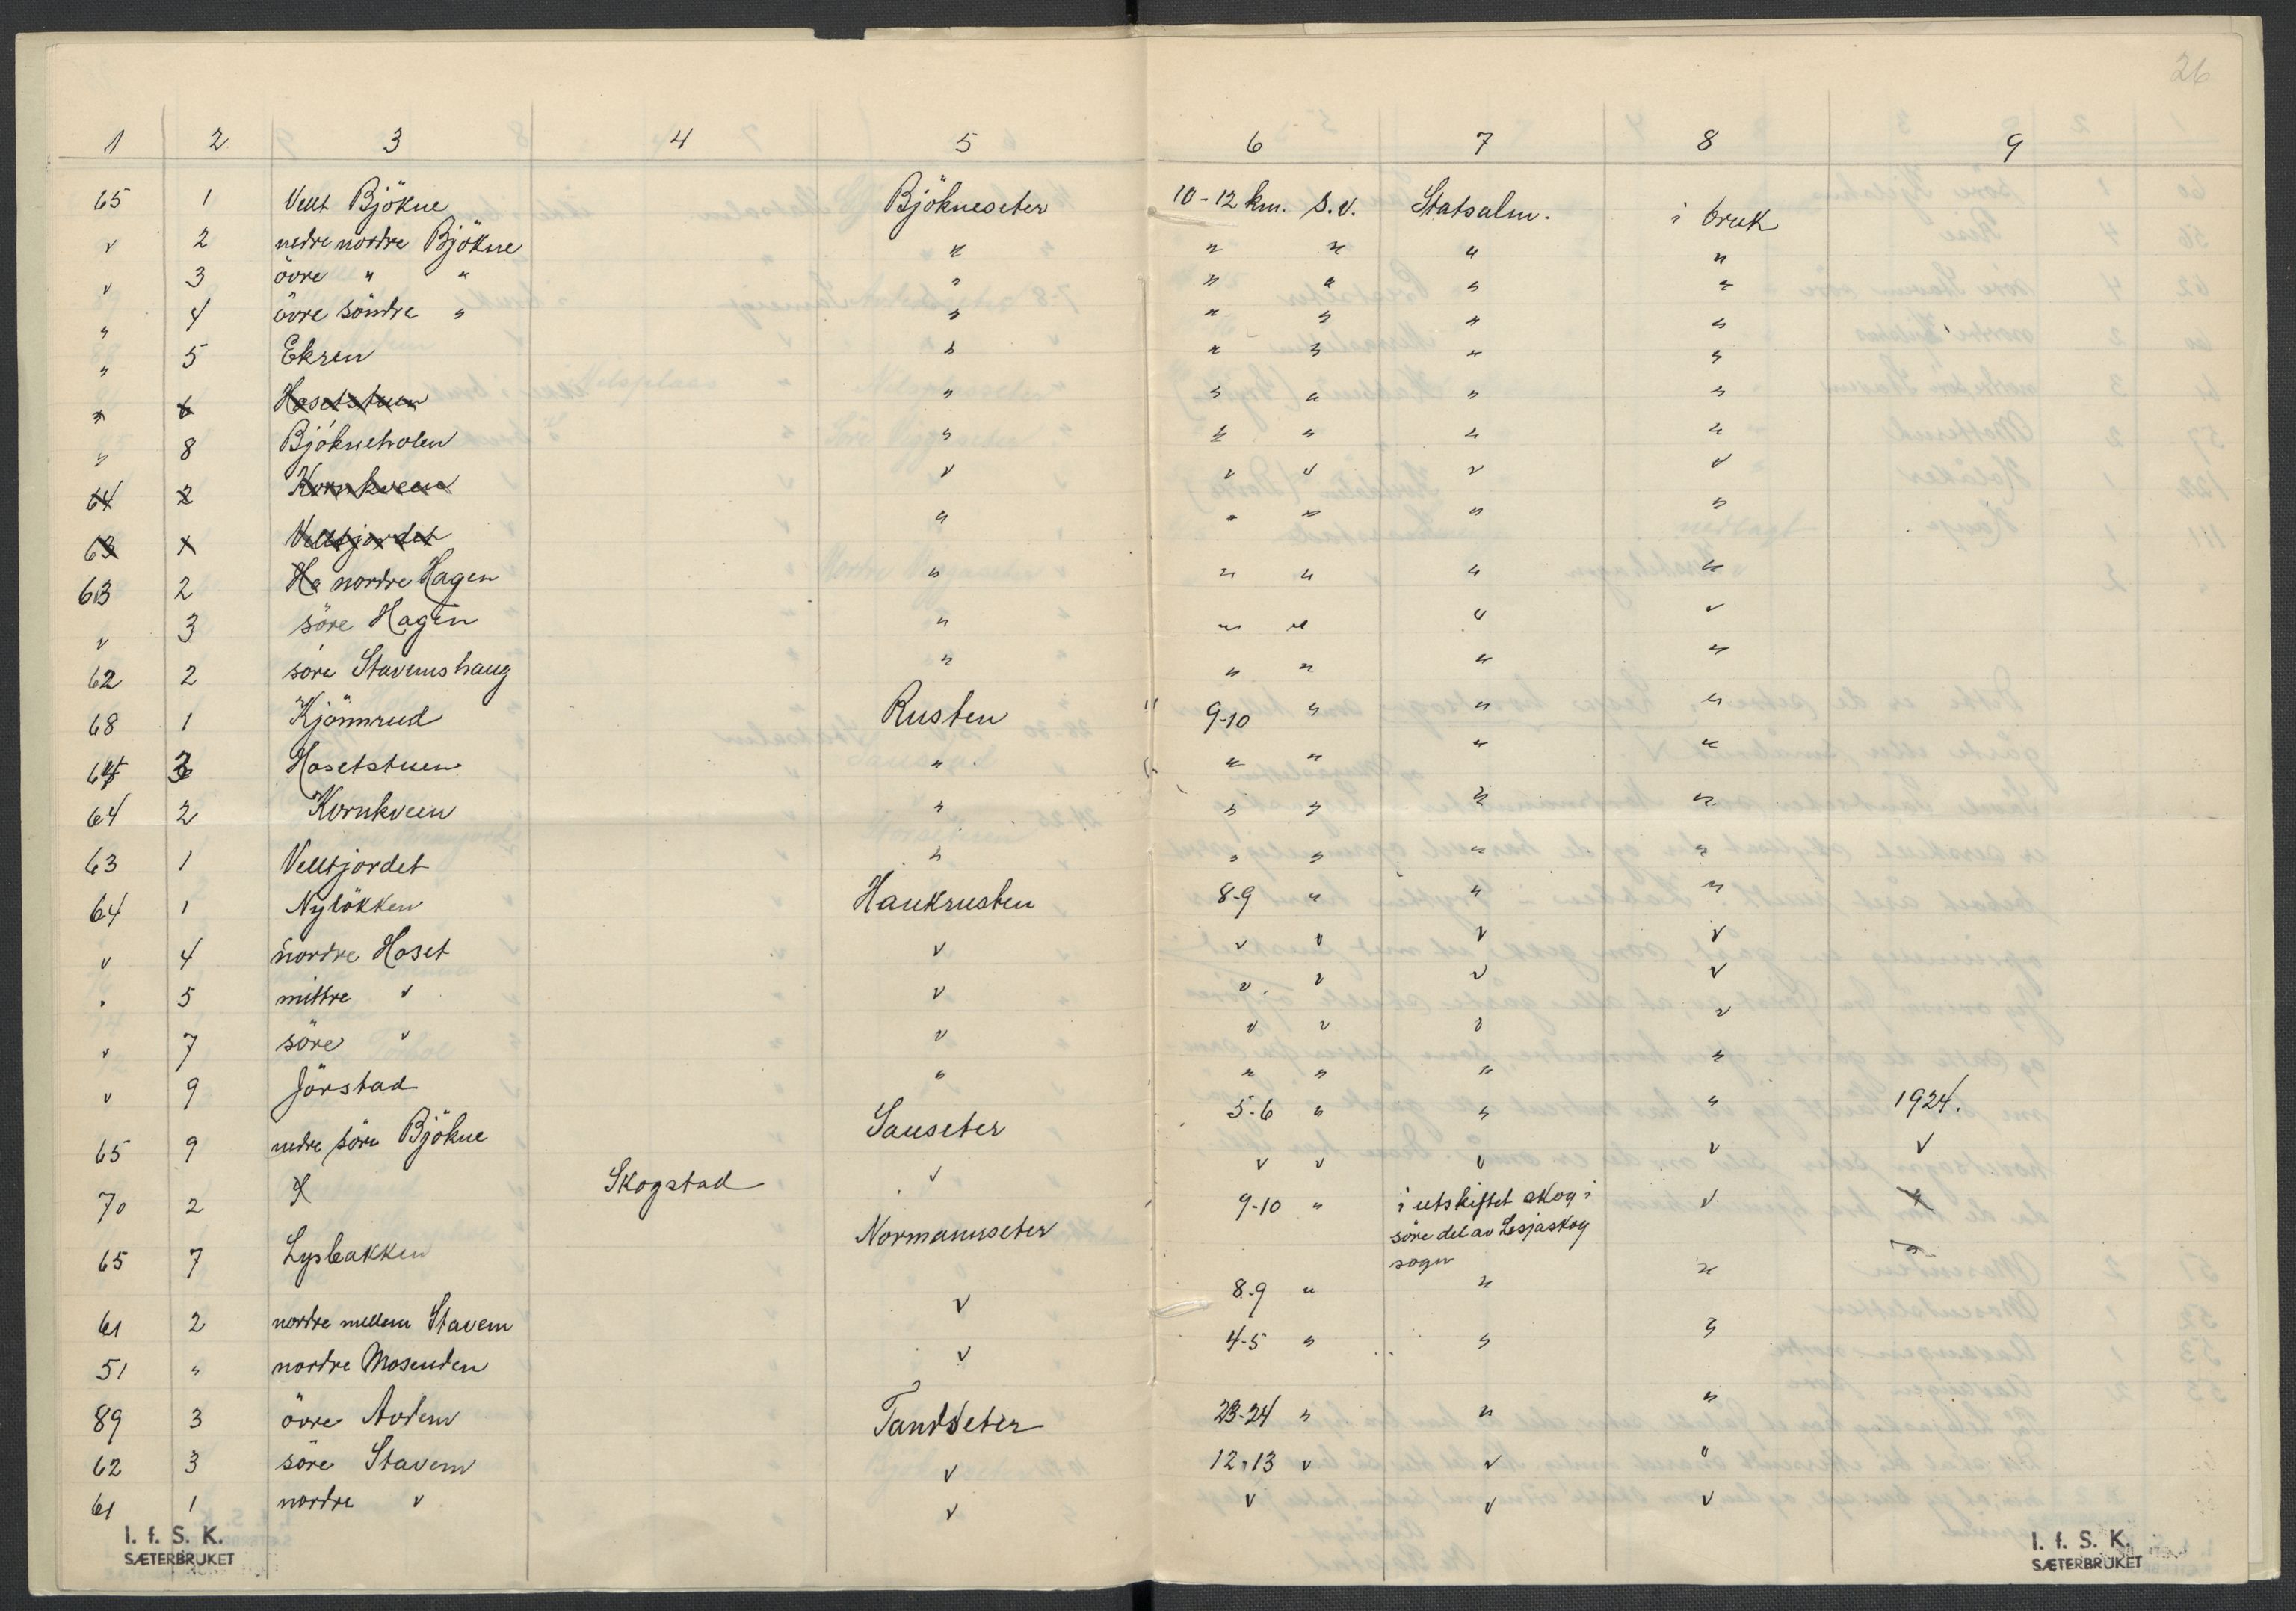 26
1 2 3 4 5 6 7 8 9
65 1 Vellt Bjökne Bjökneseter 10-12 km. S.V. Statsalm. i bruk
v 2 nedre nordre Bjökne " " " " "
v 3 övre " " " " " " "
" 4 övre söndre " " " " " "
" 5 Ekren " " " " "
" 6 Hosetstuen " " " " "
" 8 Bjökneholen " " " " "
64 2 Kornkveen v v v v v
63 1 Velltjordet " " " " "
63 2 Ha nordre Hagen " " " " "
v 3 söre Hagen " " " " v
62 2 söre Stavemshaug " " " " "
68 1 Kjönnrud Rusten " 9-10 " " "
64 3 Hosetstuen " " " " "
64 2 Kornkveen " " " " "
63 1 Velltjordet " " " " "
64 1 Nylökken Haukrusten 8-9 " " "
v 4 nordre Hoset v v v v v
" 5 mittre v v v v v v
v 7 söre v v v v v v
v 9 Jörstad " " " " "
65 9 nedre söre Bjökne Sauseter 5-6 " " " 1924.
70 2 Skogstad v v v v v v
65 7 Lysbakken Normannseter 9-10 " i utskiftet skog i v "
söre del av Lesjaskog
sogn
61 2 nordre mellem Stavem v 8-9 " " "
51 " nordre Mosenden v 4-5 " " "
89 3 övre Avdem Tandseter 23-24 " " "
62 3 söre Stavem v 12-13 v v "
61 1 nordre v v v v v
I. f. S. K.
SÆTERBRUKET
I. f. S. K.
SÆTERBRUKET